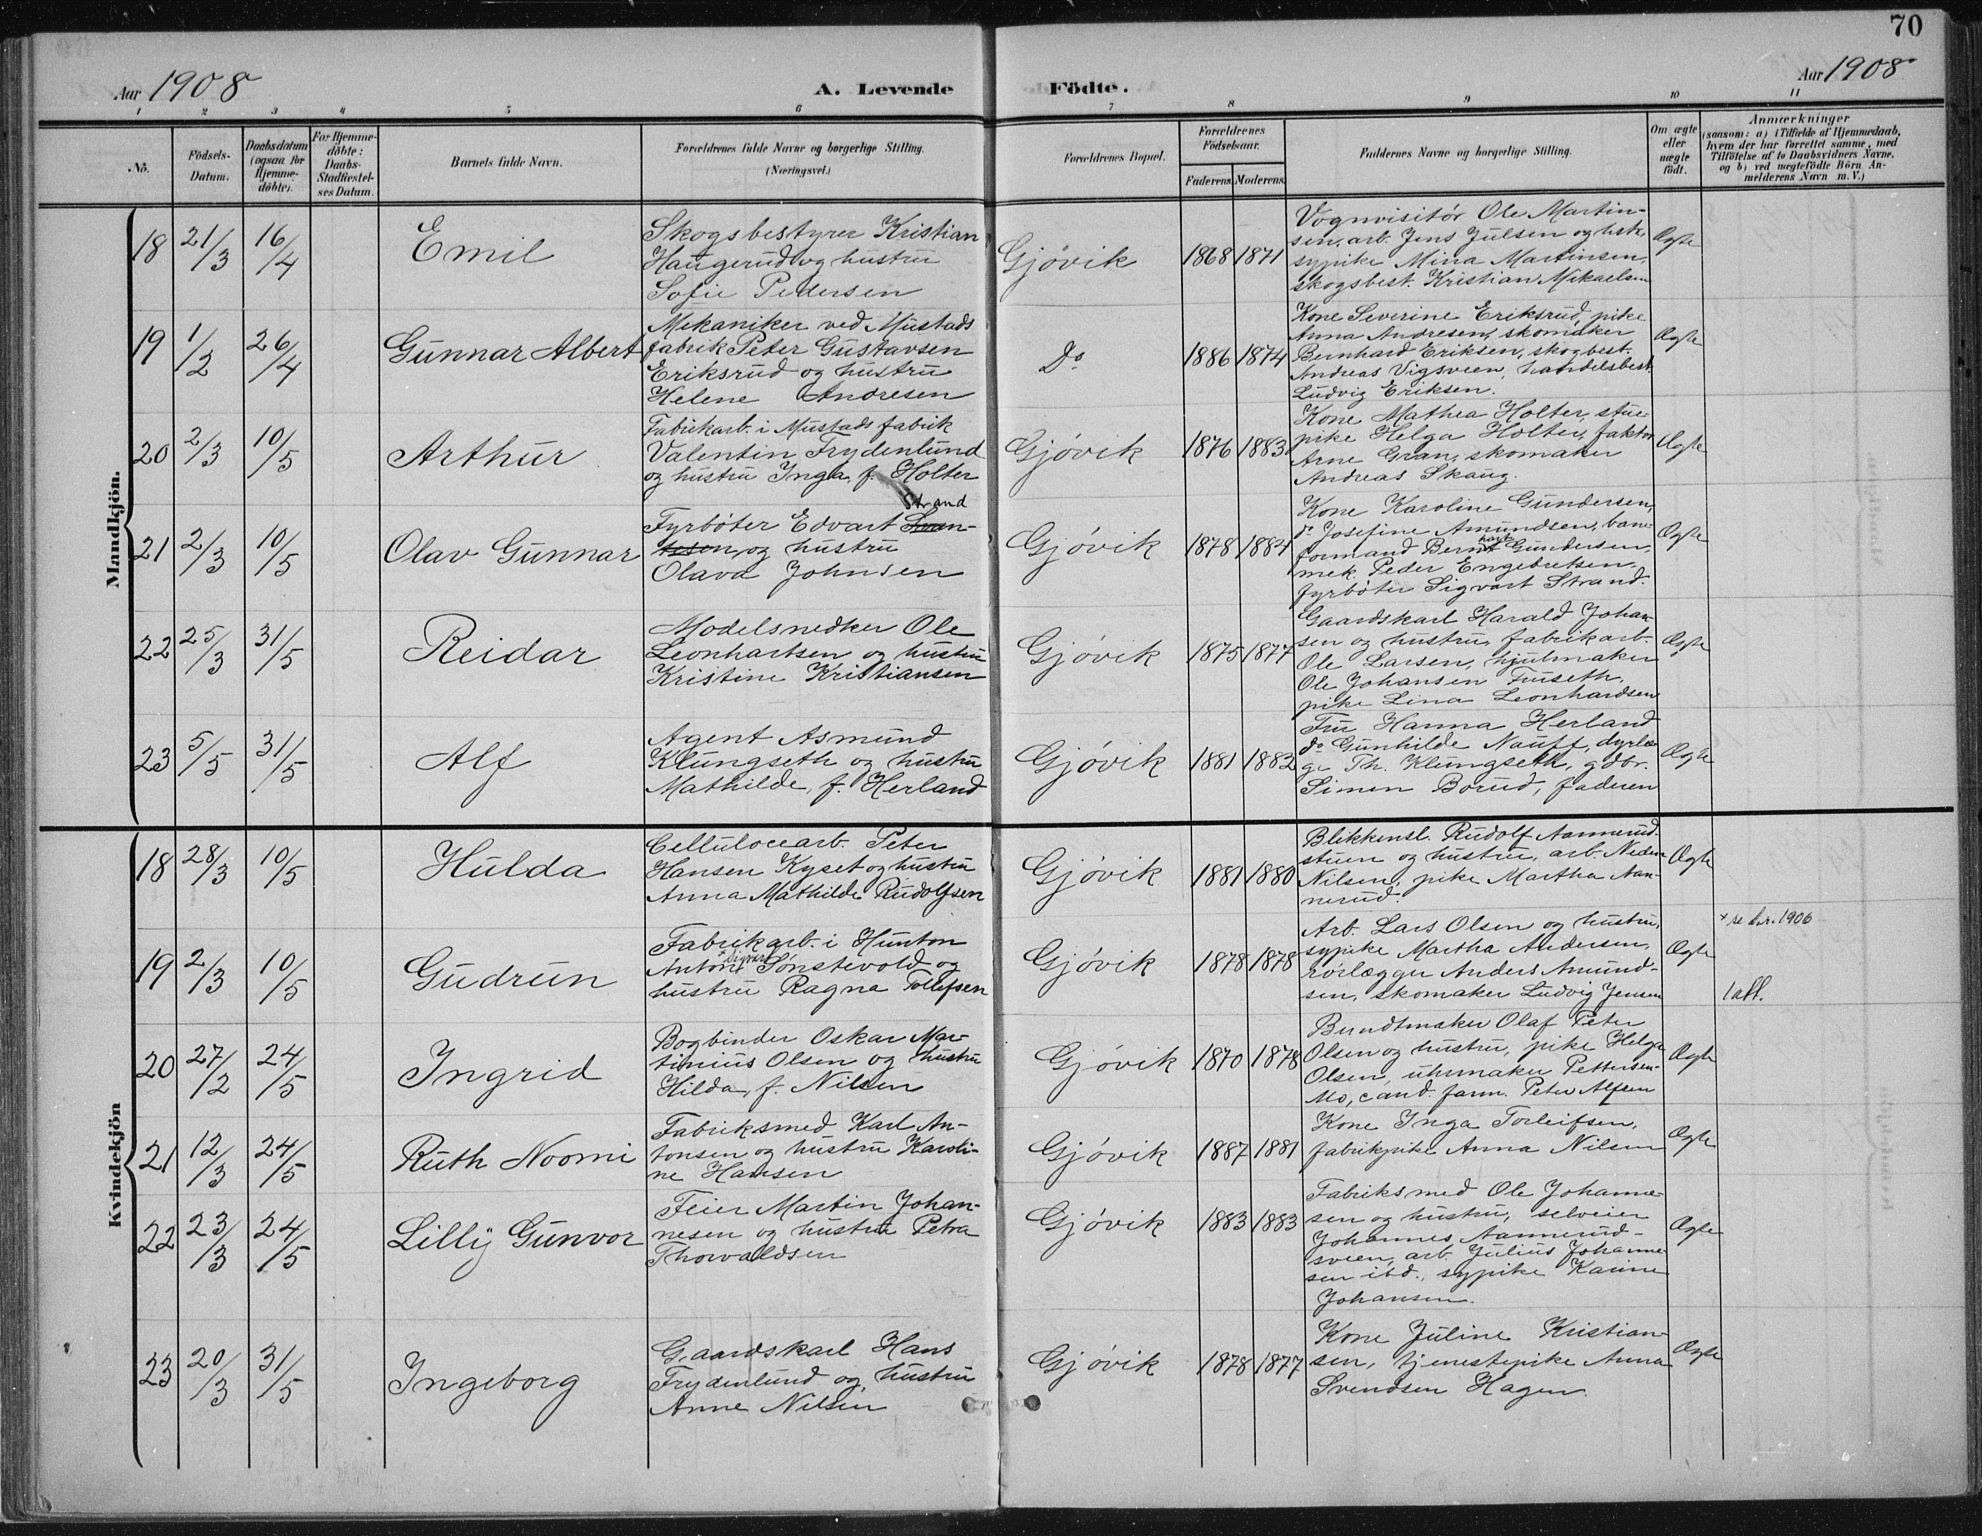 70
Aar 1908
A. Levende
Födte.
Aar 1908
1 2 3 4 5 6 7 8 9 10 11
No.
Födsels-
Datum.
Daabsdatum
(ogsaa for
Hjemme-
döbte).
For Hjemme-
döbte:
Daabs-
Stadfæstel-
ses Datum.
Barnets fulde Navn.
Forældrenes fulde Navne og borgerlige Stilling.
(Næringsvei.)
Forældrenes Bopæl.
Forældrenes
Födselsaar.
Faderens.
Moderens.
Faddernes Navne og borgerlige Stilling.
Om ægte
eller
uægte
födt.
Anmærkninger
(saasom: a) i Tilfælde af Hjemmedaab,
hvem der har forrettet samme, med
Tilföielse af to Daabsvidners Navne,
og b) ved uægtefödte Börn An-
melderens Navn m. V.)
Mandkjön.
18 21/3 16/4
Emil
Skogsbestyrer Kristian
Haugerud og hustru
Sofie Pedersen
Gjøvik
1868 1871
Vognvisitør Ole Martin-
sen, arb. Jens Julsen og hstr.
sypike Mina Martinsen,
skogsbest. Kristian Mikaelsen
Ægte
19 1/2 26/4
Gunnar Albert
Mekaniker ved Mustads
fabrik Peter Gustavsen
Eriksrud og hustru
Helene Andresen
Do
1886 1874
Kone Severine Eriksrud, pike
Anna Andresen, skomaker
Bernhard Eriksen, skogbest.
Andreas Vigsveen, handelsbest.
Ludvig Eriksen.
Ægte
20 2/3 10/5
Arthur
Fabrikarb. i Mustads fabrik
Valentin Frydenlund
og hustru Inga, f. Holter
Gjøvik
1876 1883
Kone Mathea Holter, stue-
pike Helga Holter, faktor
Arne Gran, skomaker
Andreas Skaug.
Ægte
21 2/3 10/5
Olav Gunnar
Strand
Fyrbøter Edvart Svan-
tesen, og hustru
Olava Johnsen
Gjøvik
1878 1884
Kone Karoline Gundersen,
do Josefine Amundsen, ban-
hart
formand Bernt Gundersen,
mek. Peder Engebretsen,
fyrbøter Sigvart Strand.
Ægte
22 25/3 31/5
Reidar
Modelsnedker Ole
Leonhartsen og hustru
Kristine Kristiansen
Gjøvik
1875 1877
Gaardskarl Harald Johan-
sen og hustru, fabrikarb.
Ole Larsen, hjulmaker
Ole Johansen Furseth,
pike Lina Leonhardsen
Ægte
23 5/5 31/5
Alf
Agent Asmund
Klungseth og hustru
Mathilde, f. Herland
Gjøvik
1881 1882
Fru Hanna Herland
do Gunhilde Nauff, dyrlæ-
ge Th. Klungseth, gdbr.
Simen Borud, faderen
Ægte
Kvindekjön
18 28/3 10/5
Hulda
Cellulocearb. Peter
Hansen Kyset og hustru
Anna Mathilde Rudolfsen
Gjøvik
1881 1880
Blikkensl. Rudolf Aannerud-
stuen og hustru, arb. Neden
Nilsen, pike Martha Aan-
nerud.
Ægte
19 2/3 10/5
Gudrun
Fabrikarb. i Hunton
× Sigvart
Anton Sønstevold og
hustru Ragna Tollefsen
Gjøvik
1878 1878
Arb. Lars Olsen og hustru,
sypike Martha Andersen,
rørlægger Anders Amund-
sen, skomaker Ludvig Jensen
Ægte
× se br. 1906
1 att.
20 27/2 24/5
Ingrid
Bogbinder Oskar Mar-
tinius Olsen og hustru
Hilda, f. Nilsen
Gjøvik
1870 1878
Bundtmaker Olaf Peter
Olsen og hustru, pike Helga
Olsen, uhrmaker Pettersen-
Mo, cand. farm. Peter Alfsen
Ægte
21 12/3 24/5
Ruth Noomi
Fabriksmed Karl An-
tonsen og hustru Karoli-
ne Hansen
Gjøvik
1887 1881
Kone Inga Torleifsen,
fabrikpike Anna Nilsen
Ægte
22 23/3 24/5
Lilly Gunvor
Feier Martin Johan-
nesen og hustru Petra
Thorvaldsen
Gjøvik
1883 1883
Fabriksmed Ole Johanne-
sen og hustru, selveier
Johannes Aannerud-
sveen, arb. Julius Johanne-
sen ibd., sypike Karine
Johansen.
Ægte
23 20/3 31/5
Ingeborg
Gaardskarl Hans
Frydenlund og hustru
Anne Nilsen
Gjøvik
1878 1877
Kone Juline Kristian-
sen, tjenestepike Anna
Svendsen Hagen.
Ægte